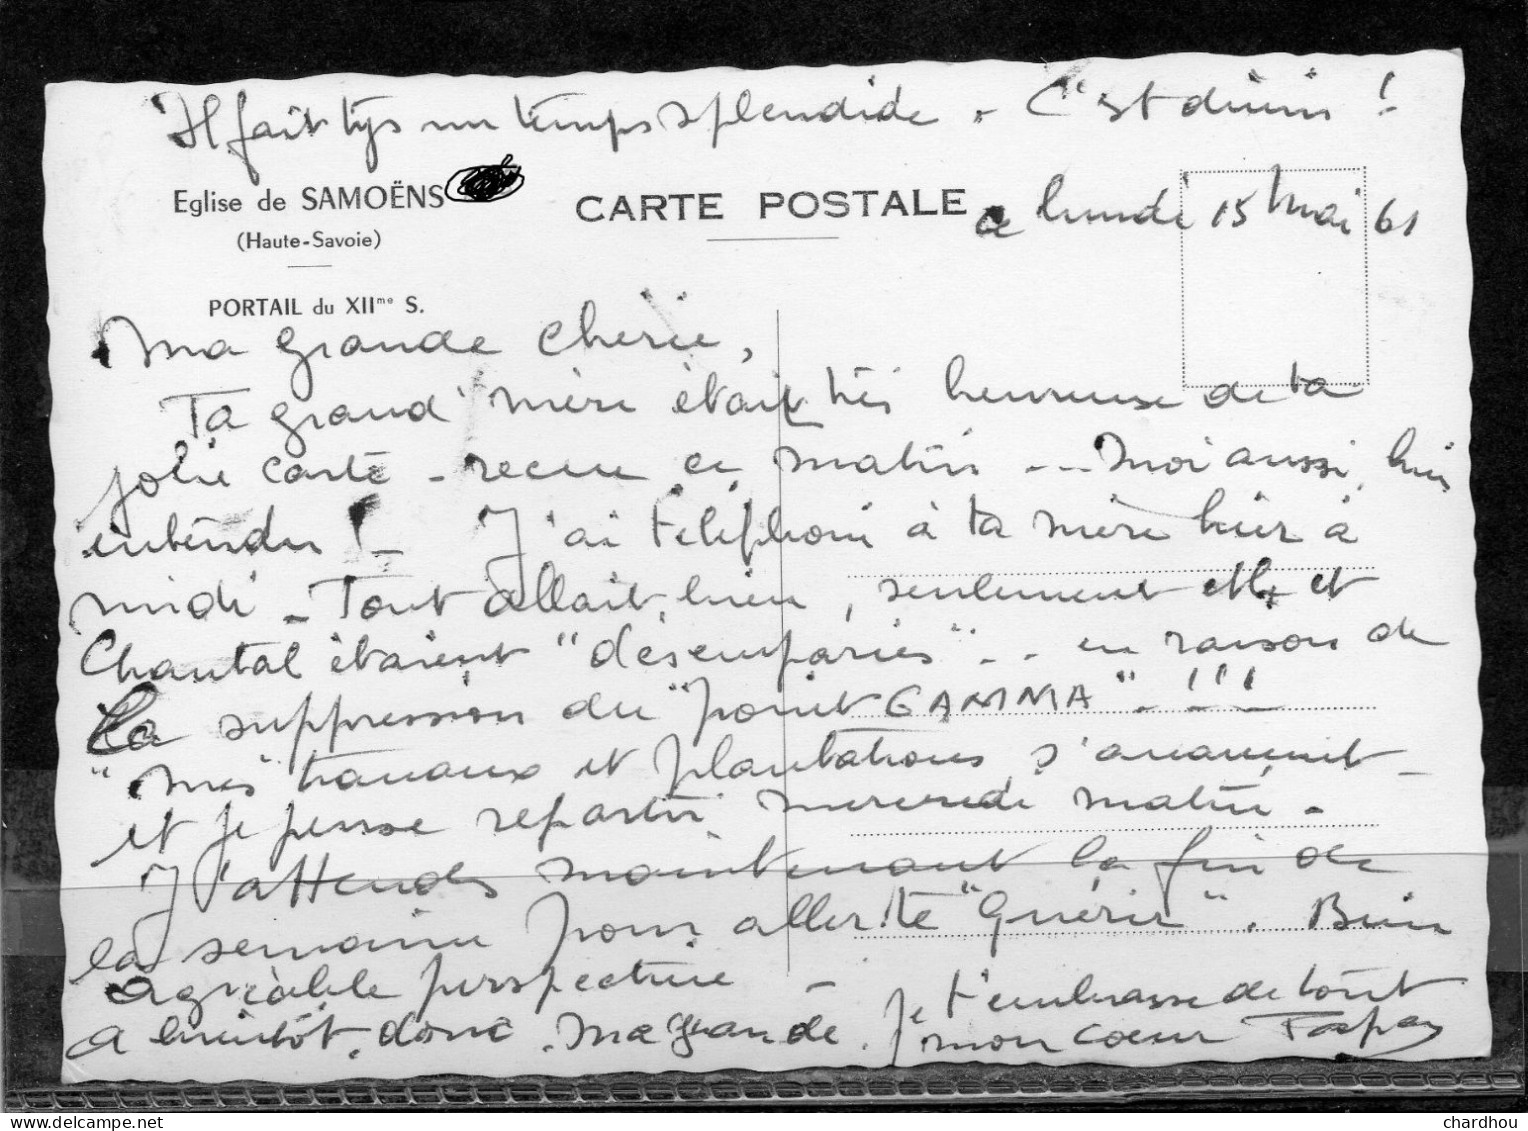 Il fait tjs un temps splendide. C'est divin !
Eglise de SAMOËNS
(Haute-Savoie)
PORTAIL du XIIme S.
CARTE POSTALE
lundi 15 Mai 61
Ma grande Chérie,
Ta grand'mère était très heureuse de ta
jolie carte - recue ce matin --- Moi aussi, bien
entendu ! - J'ai téléphoné à ta mère hier à
midi - Tout allait bien, seulement elle et
Chantal étaient "désemparées" -- en raison de
la suppression du "point GAMMA" - !!!
"mes" travaux et plantations s'avancent -
et je pense repartir mercredi matin -
J'attends maintenant la fin de
la semaine pour aller te "Guérir". Bien
agréable perspective -
A bientôt, donc, ma grande. Je t'embrasse de tout
mon coeur
chardhou